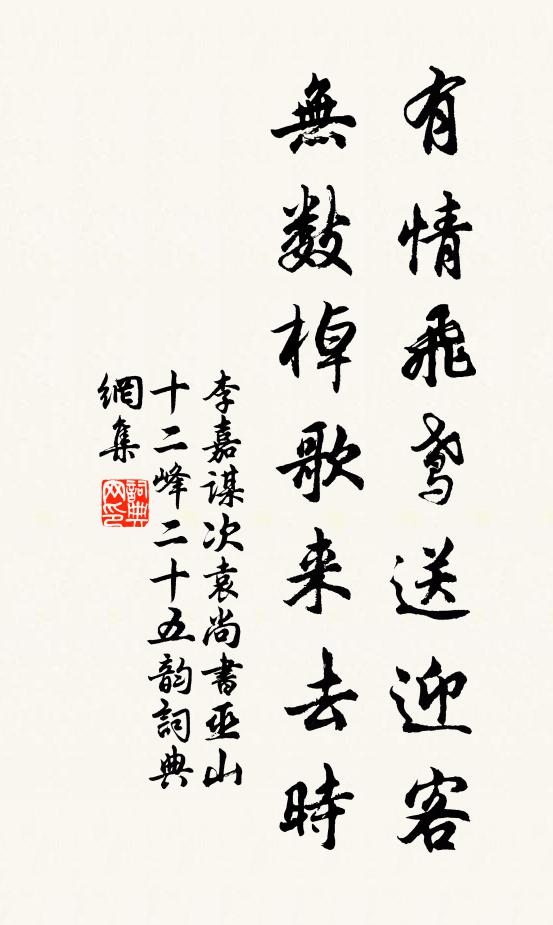 有情飛鸢送迎客
無數棹歌来去時
李嘉謀次袁尚書巫山
十二峰二十五韵詞典
網集
詞典
网印